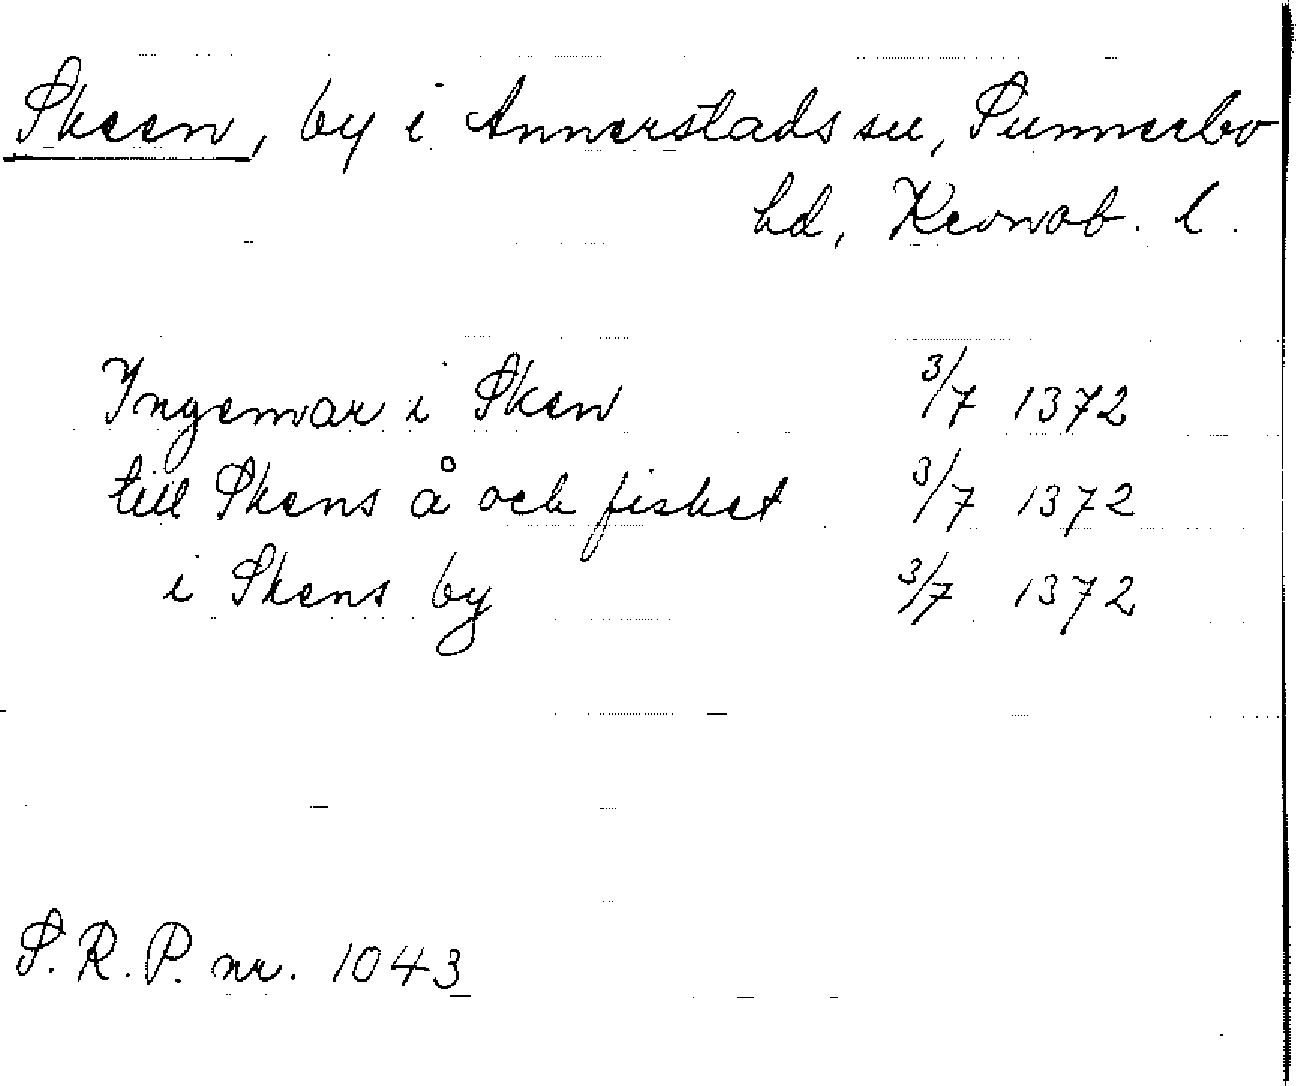 Skeen, by i Annerstads sn, Sunnerbo
hd, Kronob. l.
Ingemar i Sken 3/7 1372
till Skens å och fisket 3/7 1372
i Skens by 3/7 1372
S.R.P. nr. 1043